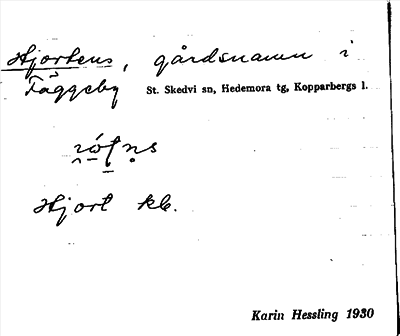 Hjortens, gårdsnamn i
Fäggeby St. Skedvi sn, Hedemora tg, Kopparbergs l.
Hjort kb.
Karin Hessling 1930